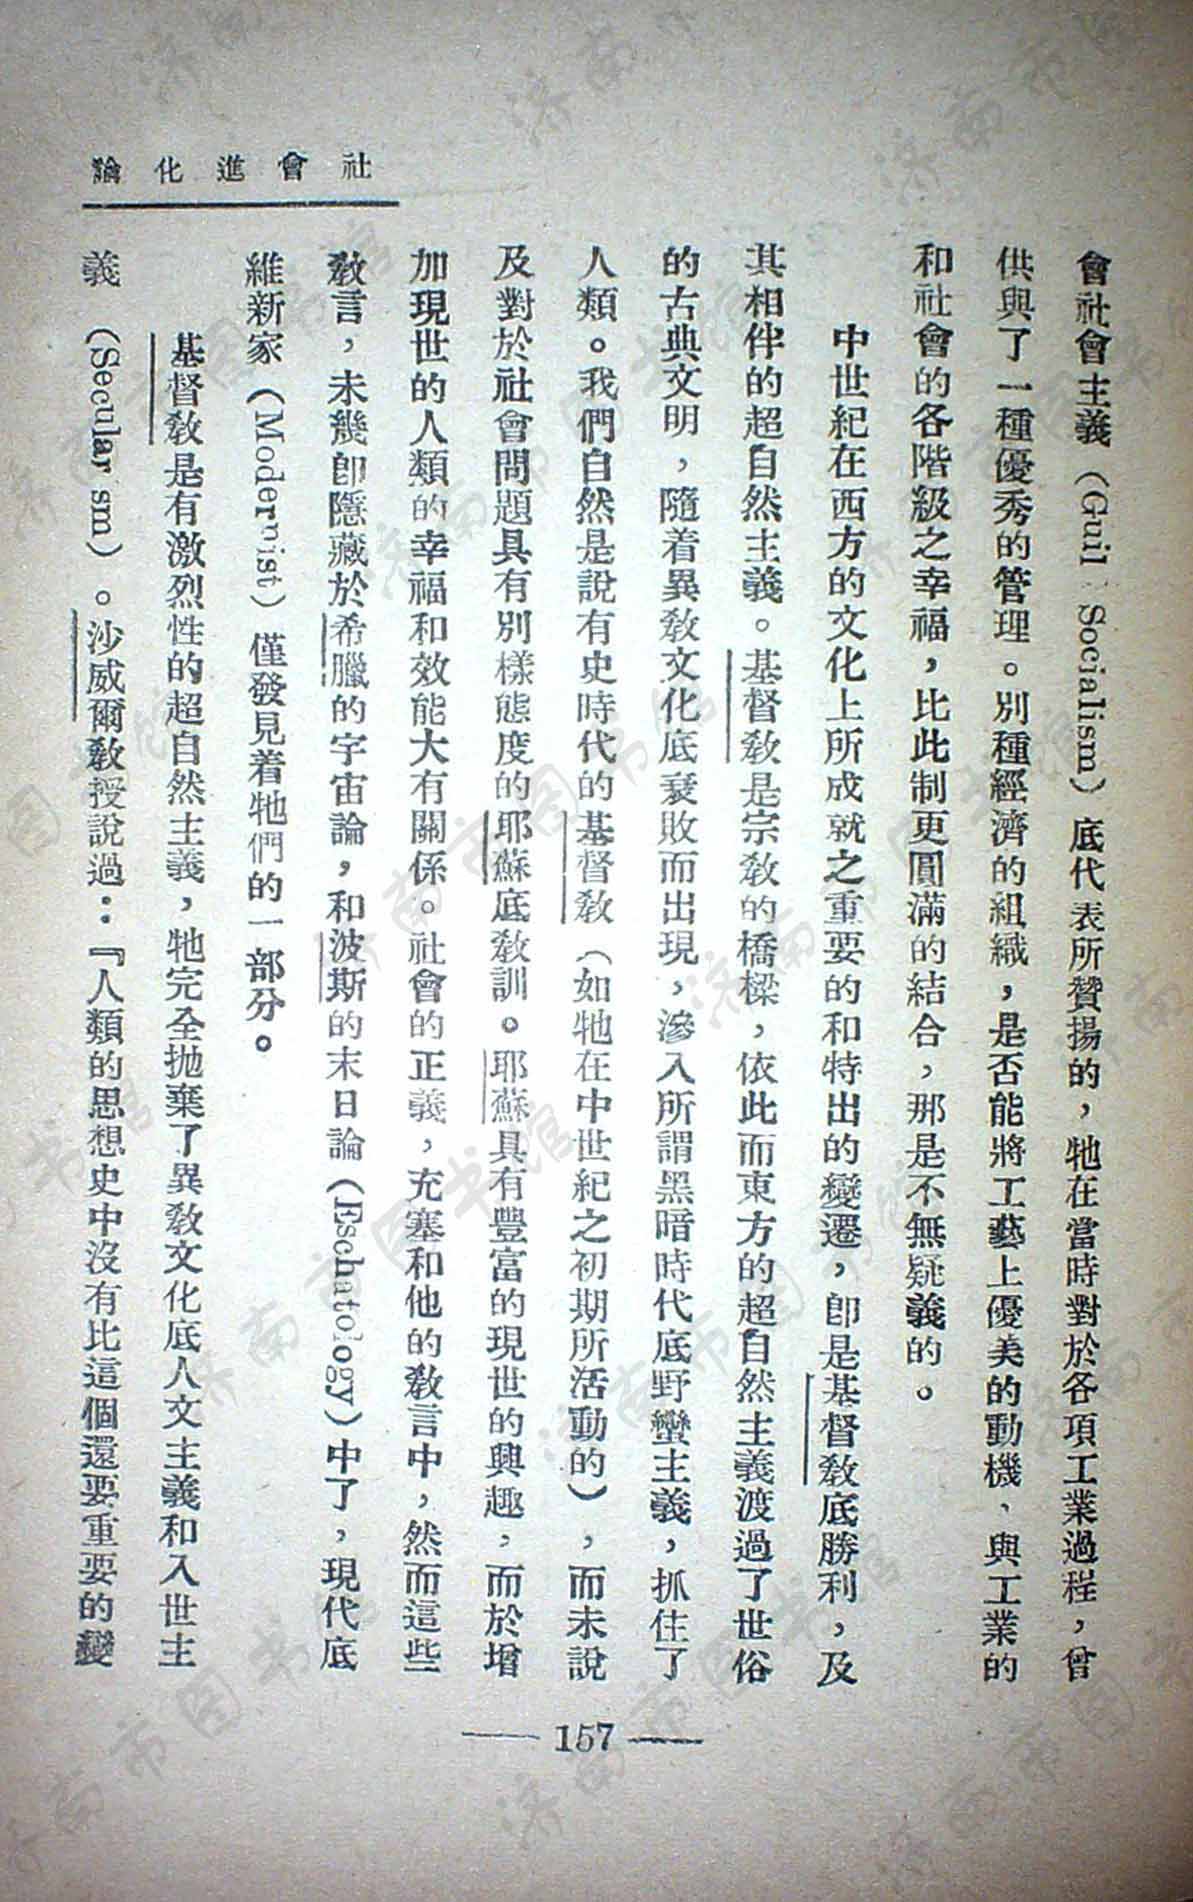 社會進化論
會社會主義（Guil Socialism）底代表所贊揚的，牠在當時對於各項工業過程，曾
供與了一種優秀的管理。別種經濟的組織，是否能將工藝上優美的動機、與工業的
和社會的各階級之幸福，比此制更圓滿的結合，那是不無疑義的。
中世紀在西方的文化上所成就之重要的和特出的變遷，卽是基督教底勝利，及
其相伴的超自然主義。基督教是宗教的橋樑，依此而東方的超自然主義渡過了世俗
的古典文明，隨着異教文化底衰敗而出現，滲入所謂黑暗時代底野蠻主義，抓住了
人類。我們自然是說有史時代的基督教（如牠在中世紀之初期所活動的），而未說
及對於社會問題具有別樣態度的耶蘇底教訓。耶蘇具有豐富的現世的興趣，而於增
加現世的人類的幸福和效能大有關係。社會的正義，充塞和他的教言中，然而這些
教言，未幾卽隱藏於希臘的宇宙論，和波斯的末日論（Eschatology）中了，現代底
維新家（Modernist）僅發見着牠們的一部分。
基督教是有激烈性的超自然主義，牠完全抛棄了異教文化底人文主義和入世主
義（Secular sm）。沙威爾教授說過：『人類的思想史中沒有比這個還要重要的變
157
济南市图书馆